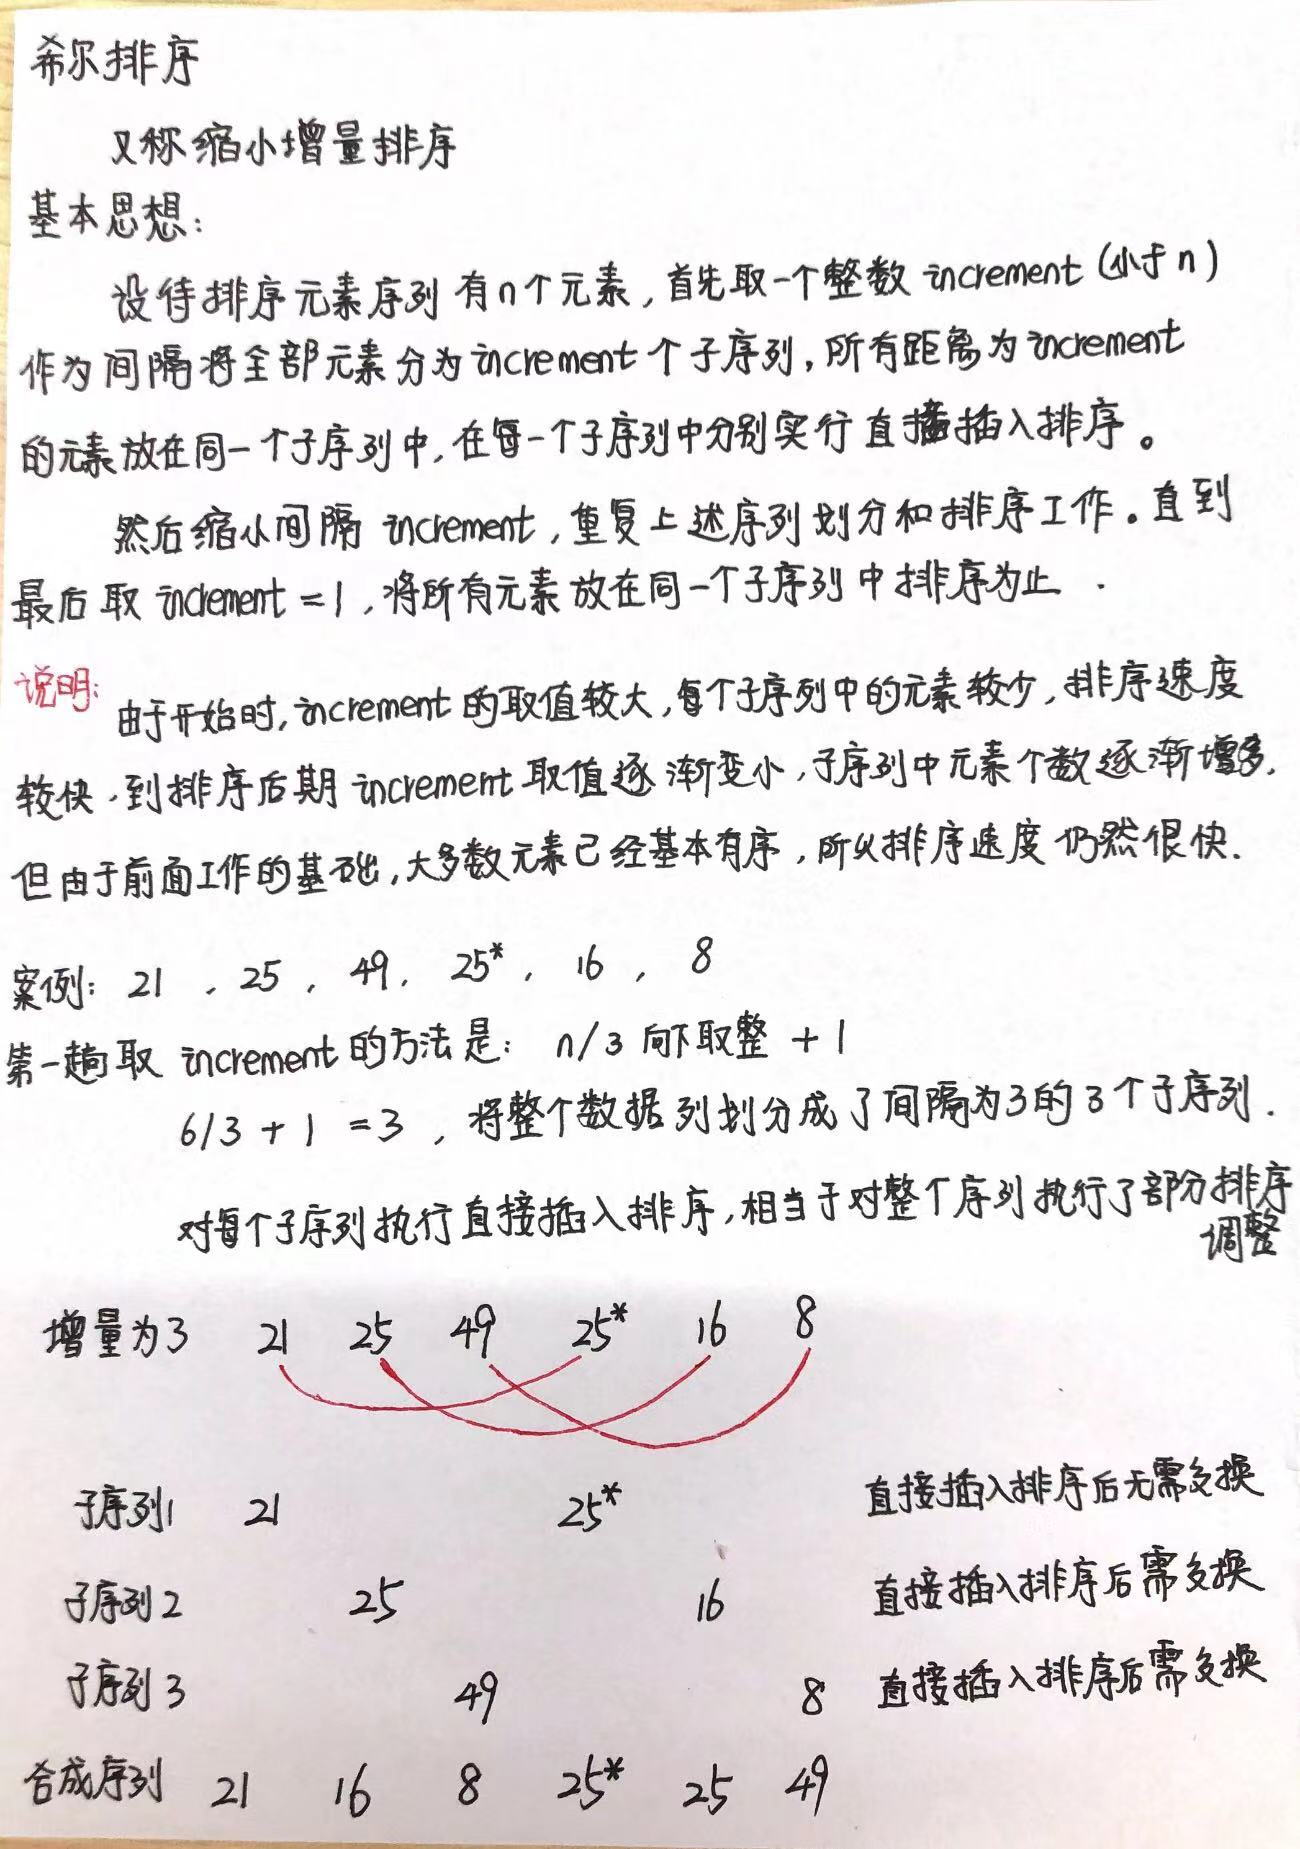 希尔排序
又称缩小增量排序
基本思想:
设待排序元素序列有n个元素,首先取一个整数 increment (小于n)
作为间隔将全部元素分为increment个子序列,所有距离为increment
的元素放在同一个子序列中,在每一个子序列中分别实行直接插入排序。
然后缩小间隔 increment,重复上述序列划分和排序工作。直到
最后取 increment = 1,将所有元素放在同一个子序列中排序为止.
说明:
由于开始时,increment的取值较大,每个子序列中的元素较少,排序速度
较快,到排序后期increment取值逐渐变小,子序列中元素个数逐渐增多,
但由于前面工作的基础,大多数元素已经基本有序,所以排序速度仍然很快.
案例: 21 , 25 , 49, 25* , 16 , 8
第一趟取 increment的方法是: n/3 向下取整 + 1
6/3 + 1 = 3 , 将整个数据列划分成了间隔为3的3个子序列.
对每个子序列执行直接插入排序,相当于对整个序列执行了部分排序
调整
增量为3 21 25 49 25* 16 8
子序列1 21 25* 直接插入排序后无需交换
子序列2 25 16 直接插入排序后需交换
子序列3 49 8 直接插入排序后需交换
合成序列 21 16 8 25* 25 49